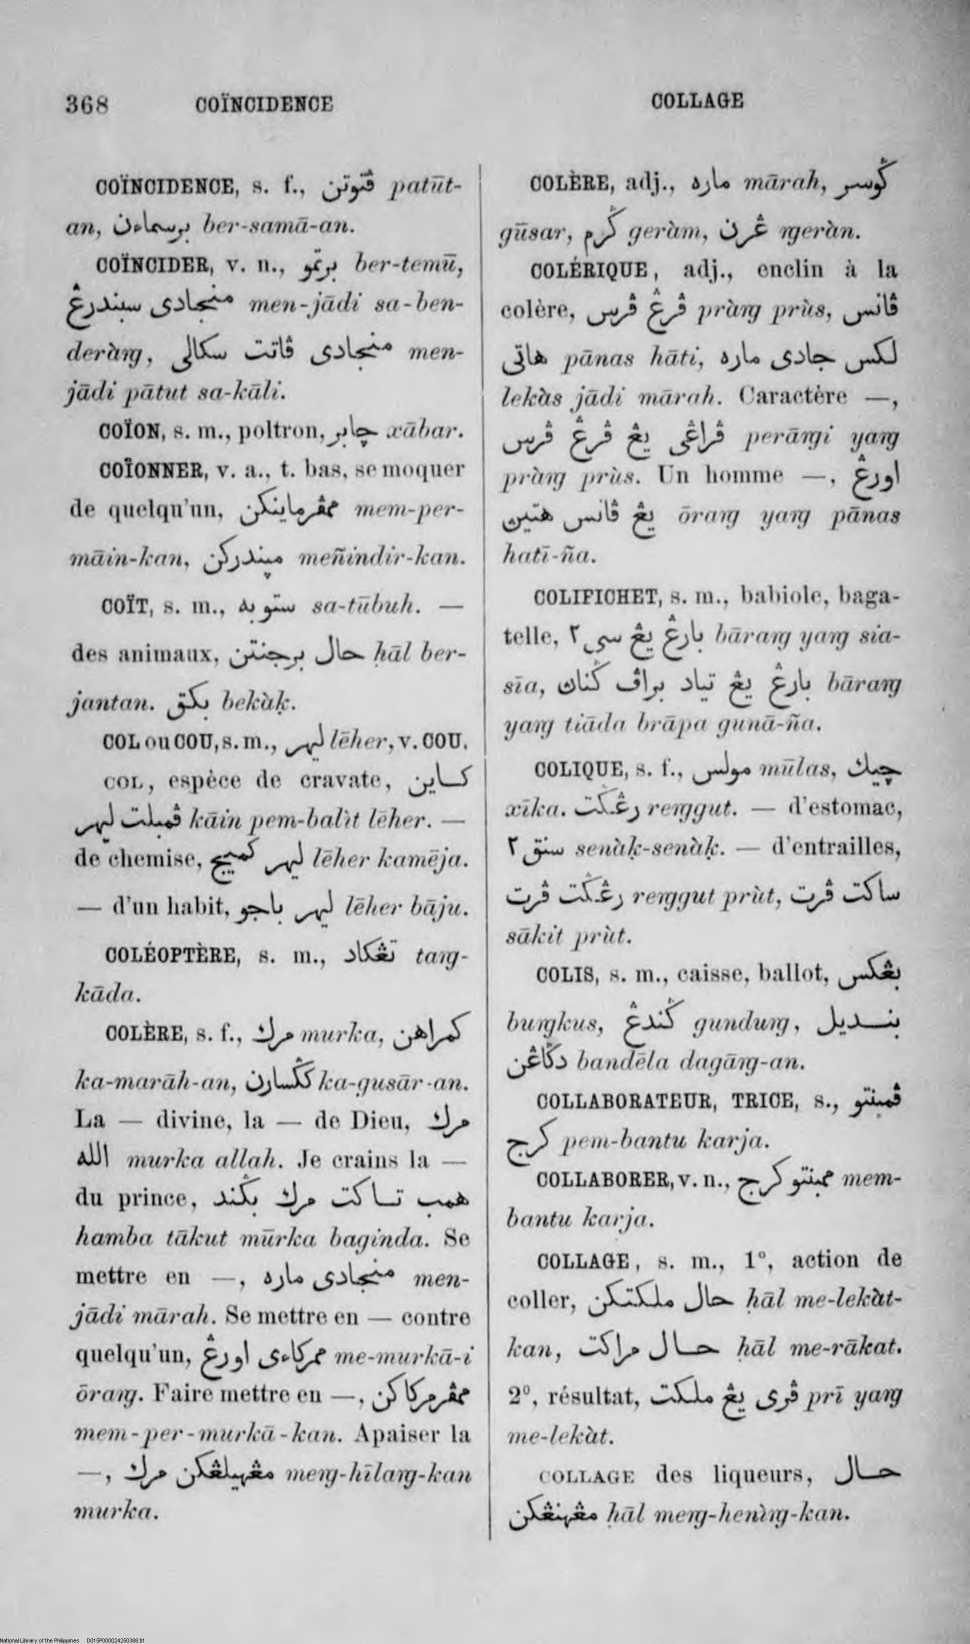 368 COÏNCIDENCE COLLAGE
COÏNCIDENCE, s. f., ڤتوتن patūt-
an, برسماءن ber-samā-an.
COÏNCIDER, v. n., برتمو ber-temū,
منجادى سبندرڠ men-jādi sa-ben-
deràrg, منجادى ڤاتت سكالى men-
jādi pātut sa-kāli.
COÏON, s. m., poltron, چابر xābar.
COÏONNER, v. a., t. bas, se moquer
de quelqu'un, ممڤرماينكن mem-per-
māin-kan, meñindir-kan.
COÏT, s. m., ستوبه sa-tūbuh. —
des animaux, حال برجنتن ḥāl ber-
jantan. بكق bekàḳ.
COL ou COU, s. m., ليهر lēher, v. COU.
COL, espèce de cravate, كاين
ڤمبلت ليهر kāin pem-balìt lēher. —
de chemise, ليهر كميج lēher kamēja.
— d'un habit, ليهر باجو lēher bāju.
COLÉOPTÈRE, s. m., تڠكاد targ-
kāda.
COLÈRE, s. f., مرك murka, كمراهن
ka-marāh-an, ككسارن ka-gusār-an.
La — divine, la — de Dieu, مرك
الله murka allah. Je crains la —
du prince, همب تاكت مرك بكند
hamba tākut mūrka baginda. Se
mettre en —, منجادى ماره men-
jādi mārah. Se mettre en — contre
quelqu'un, ممركاءى اورڠ me-murkā-i
ōrarg. Faire mettre en —, ممڤرمركاكن
mem-per-murkā-kan. Apaiser la
—, مڠهيلڠكن مرك merg-hīlarg-kan
murka.
COLÈRE, adj., ماره mārah, ݢوسر
gūsar, ݢرم geràm, ڠرن rgeràn.
COLÉRIQUE, adj., enclin à la
colère, ڤرڠ ڤرس pràrg prùs, ڤانس
هاتى pānas hāti, لكس جادى ماره
lekàs jādi mārah. Caractère —,
ڤراڠى يڠ ڤرڠ ڤرس perārgi yarg
pràrg prùs. Un homme —, اورڠ
يڠ ڤانس هتين ōrarg yarg pānas
hatī-ña.
COLIFICHET, s. m., babiole, baga-
telle, بارڠ يڠ سى٢ bārarg yarg sia-
sīa, بارڠ يڠ تياد براڤ ݢنان bārarg
yarg tiāda brāpa gunā-ña.
COLIQUE, s. f., مولس mūlas, چيك
xīka. رڠݢت rerggut. — d'estomac,
سنق٢ senàḳ-senàḳ. — d'entrailles,
رڠݢت ڤرت rerggut prùt, ساكت ڤرت
sākit prùt.
COLIS, s. m., caisse, ballot, بڠكس
burgkus, ݢندڠ gundurg, بنديل
دݢاڠن bandēla dagārg-an.
COLLABORATEUR, TRICE, s., ڤمبنتو
كرج pem-bantu karja.
COLLABORER, v. n., ممبنتو كرج mem-
bantu karja.
COLLAGE, s. m., 1°, action de
coller, حال ملكتكن ḥāl me-lekàt-
kan, حال مراكت ḥāl me-rākat.
2°, résultat, ڤرى يڠ ملكت prī yarg
me-lekàt.
COLLAGE des liqueurs, حال
مڠهنڠكن ḥāl merg-henìrg-kan.
National Library of the Philippines